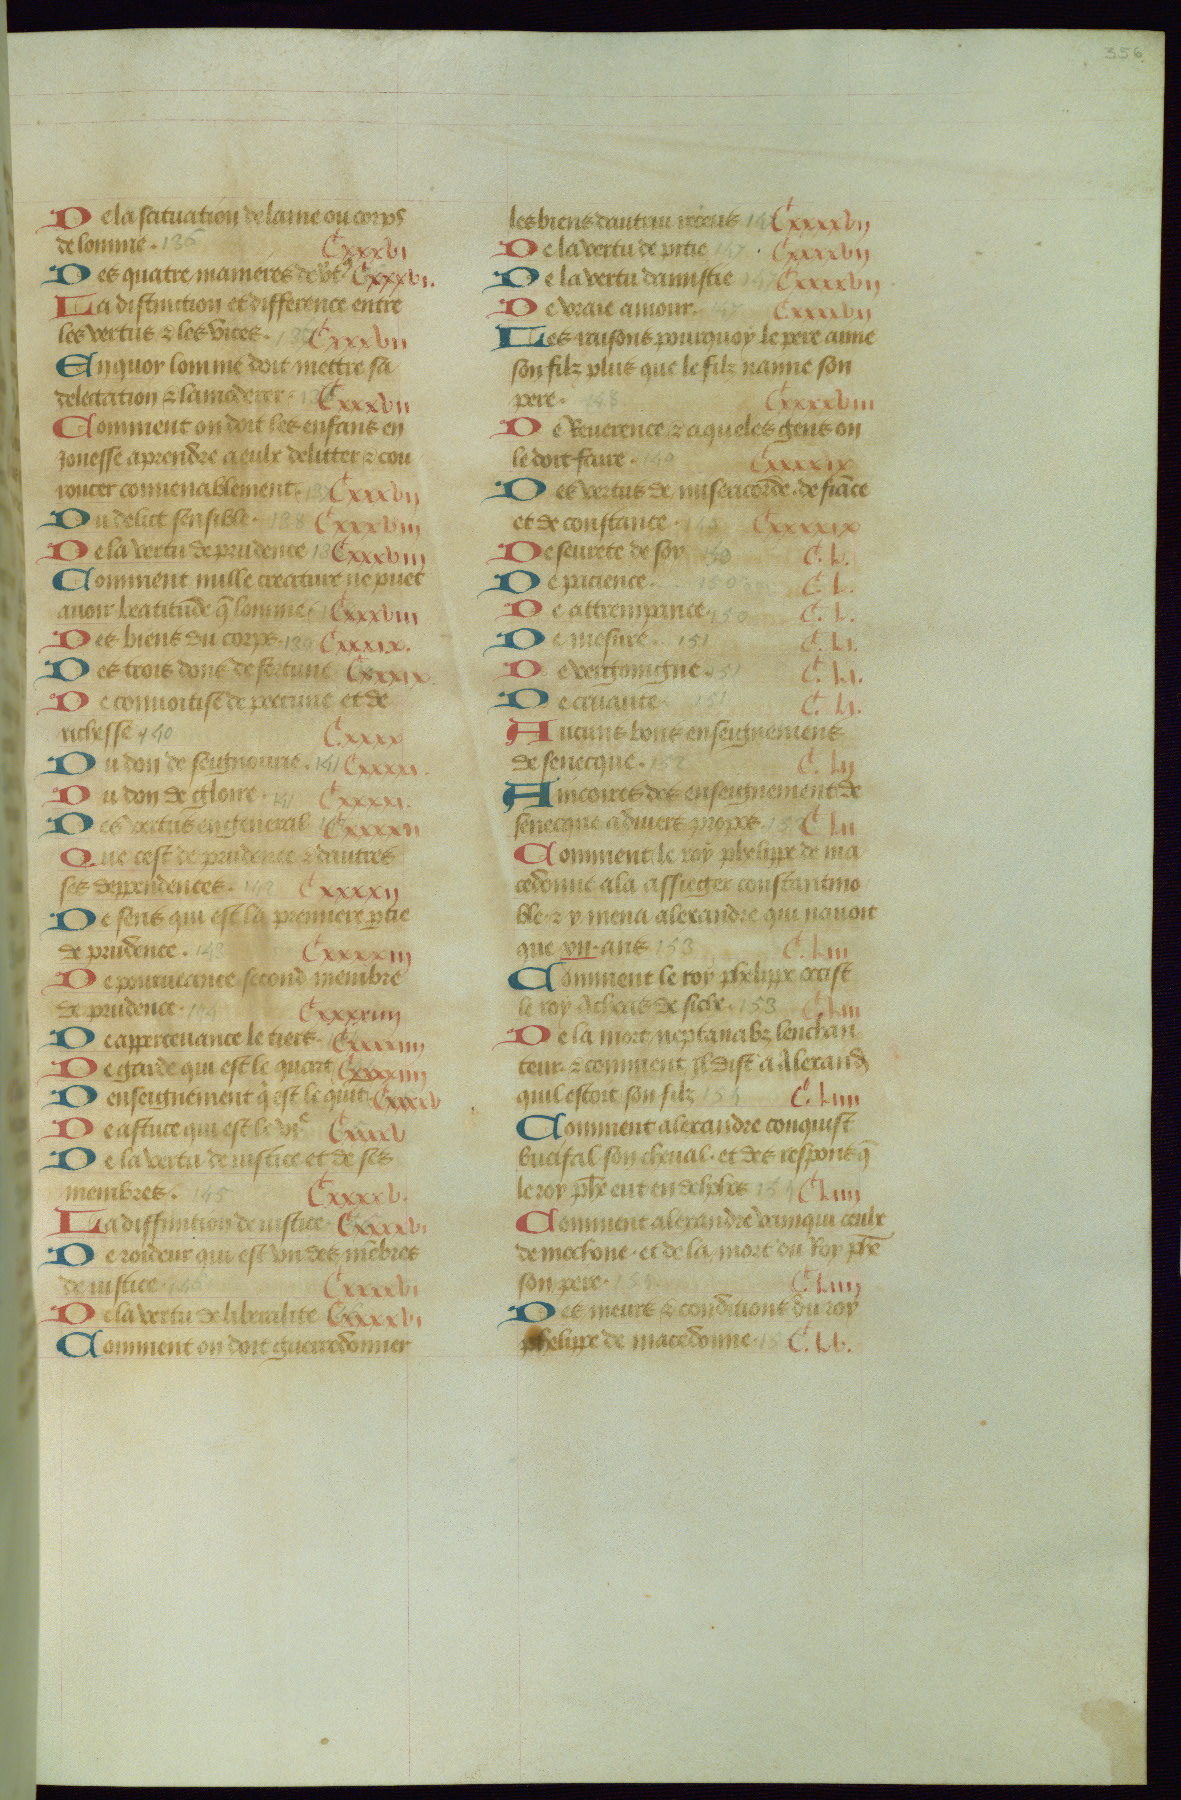 356
De la scituation de lame ou corps
de lomme . 136 Cxxxvi
Des quatre manieres de Cxxxvi.
La distinction et difference entre
les vertus & les vices . Cxxxvii
En quoy lomme doit mettre sa
delectation & la moderer . Cxxxvii
Comment on doit les enfans en
Jonesse aprendre a eulx delitter & cou
roucer convenablement . Cxxxvii
Du delict sensible . 138 Cxxxviii
De la vertu de prudence Cxxxviii
Comment nulle creature ne puet
avoir beatitude q̄ lomme . Cxxxviii
Des biens du corps . 139 Cxxxix.
Des trois dons de fortune Cxxxix.
De convoitise de peccune et de
richesse 140 Cxxxx
Du don de seignourie . 141 Cxxxxi.
Du don de gloire . 141 Cxxxxi.
Des vertus en general Cxxxxii
Que cest de prudence & dautres
ses deppendences . 142 Cxxxxii
De sens qui est la premiere ptie
de prudence . 143 Cxxxxiii
De pourveance second membre
de prudence . 144 Cxxxxiiii
De appercevance le tiers . Cxxxxiiii
De garde qui est le quart Cxxxxiiii
D enseignement q̄ est le quit . Cxxxxv
De astuce qui est le vi.e Cxxxxv
De la vertu de iustice et de ses
membres . 145 Cxxxxv.
La diffinition de iustice . Cxxxxvi
De roideur qui est vn des mēbres
de iustice . 146 Cxxxxvi
De la vertu de liberalite Cxxxxvi
Comment on doit guerredonner
les biens dautrui receus Cxxxxvii
De la vertu de pitie 147 . Cxxxxvii
De la vertu damistie Cxxxxvii .
De vraie amour . 147 Cxxxxvii
Les raisons pourquoy le pere aime
son filz plus que le filz naime son
pere . 148 Cxxxxviii
De Reverence & a queles gens on
le doit faire . 149 Cxxxxix
Des vertus de misericorde . de fiāce
et de constance . Cxxxxix
De seurete de soy 150 C. L.
De pacience . 150 C. L.
De attrempance . 150 C. L.
De mesure . 151 C. Li.
De vergoingne . 151 C. Li.
De cruaute . 151 C. Li.
Aucuns bons enseignemens
de senecque . 152 C. Lii
Aincoires des enseignement de
senecque a divers propos . C Lii
Comment le roy phelippe de ma
cedonne ala assieger constantino
ble . & y mena alexandre qui navoit
que xvii . ans 153 C. Liii
Comment le roy phelippe occist
le roy de siche . 153 C Liii
De la mort neptanabz lenchan
teur . & comment il dist a Alexand̄
quil estoit son filz 154 C. Liiii
Comment alexandre conquist
bucifal son cheval . et des respons q̄
le roy phē eut en delphos 154 C Liiii
Comment alexandre vainqui ceulx
de mothone . et de la mort du Roy phē
son pere . C Liiii
Des meurs & conditions du roy
phelippe de macedonne . C. Lv.